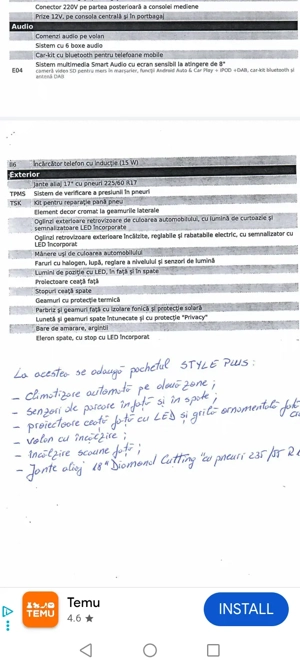 Conector 220V pe partea posterioară a consolei mediene
Prize 12V, pe consola centrală și în portbagaj
Audio
Comenzi audio pe volan
Sistem cu 6 boxe audio
Car-kit cu bluetooth pentru telefoane mobile
E04 Sistem multimedia Smart Audio cu ecran sensibil la atingere de 8"
cameră video SD pentru mers în marșarier, funcții Android Auto & Car Play + IPOD +DAB, car-kit bluetooth și
antenă DAB
06 Încărcător telefon cu inducție (15 W)
Exterior
Jante aliaj 17" cu pneuri 225/60 R17
TPMS Sistem de verificare a presiunii în pneuri
TSK Kit pentru reparație pană pneu
Element decor cromat la geamurile laterale
Oglinzi exterioare retrovizoare de culoarea automobilului, cu lumină de curtoazie și
semnalizatoare LED încorporate
Oglinzi retrovizoare exterioare încălzite, reglabile și rabatabile electric, cu semnalizator cu
LED încorporat
Mânere uși de culoarea automobilului
Faruri cu halogen, lupă, reglare a nivelului și senzori de lumină
Lumini de poziție cu LED, în față și în spate
Proiectoare ceață față
Stopuri ceață spate
Geamuri cu protecție termică
Parbriz și geamuri față cu izolare fonică și protecție solară
Lunetă și geamuri spate întunecate și cu protecție "Privacy"
Bare de amarare, argintii
Eleron spate, cu stop cu LED încorporat
La acestea se adaugă pachetul STYLE PLUS:
- Climatizare automată pe două zone;
- senzori de parcare în față și în spate;
- proiectoare ceață față cu LED și grilă ornamentală față
- volan cu încălzire;
- încălzire scaune față;
- Jante aliaj 18" Diamond Cutting "cu pneuri 235/55 R
Temu
4.6 ★
TEMU
INSTALL